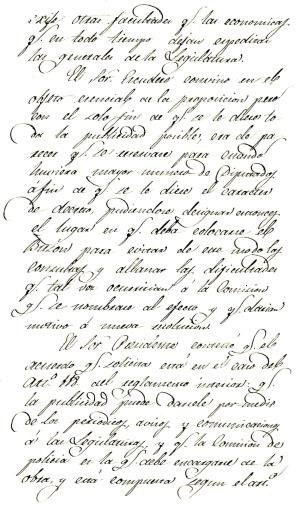 otras facultades q.e las economicas,
q.e en todo tiempo dejan expeditas
las generales de la Legislatura.
El Sor. Escudero convino en el
objeto esencial de la proposicion pero
con el solo fin de q.e se le diera to
da la publicidad posible, era de pa
recer q.e se reservase para cuando
huviera mayor numero de Diputados,
á fin de q.e se le diese el caracter
de decreto, pudiendose designar entonces
el lugar en q.e debá colocarse el
para evitar de ese modo las
consultas y allanar las dificultades
q.e tal vez ocurririan á la Comicion
q.e se nombrase al efecto y q.e darian
motivo á nueva
El Sor. Presidente q.e el
acuerdo q.e solicita está en el caso del
Art.o del reglamento interior: q.e
la publicidad puede darsele por medio
de los periodicos, avisos y comunicaciones
á las Legislaturas, y q.e la Comicion de
policia es la q.e debe encargarse de la
obra, y está compuesta segun el art.o